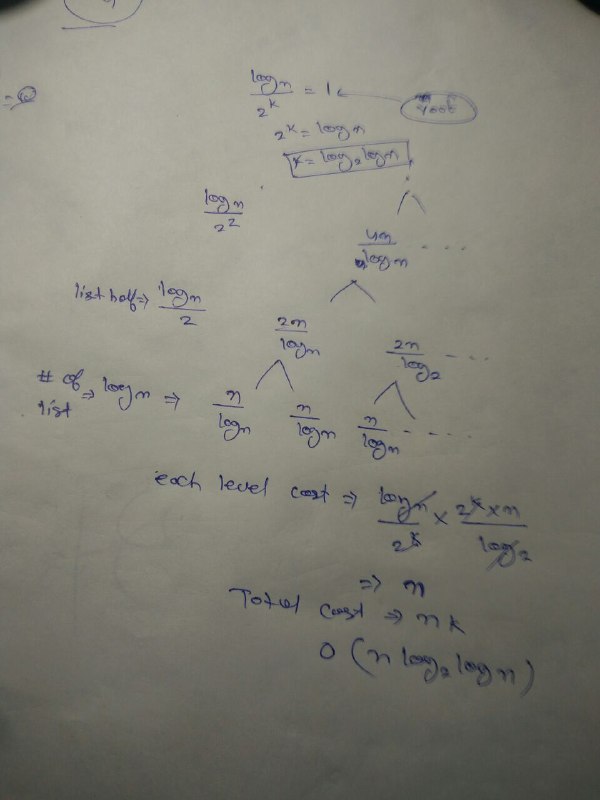 log n / 2^k = 1 ← root
=Q
2^k = log n
k = log₂ log n
log n / 2²
4n / log n - - - -
list half ⇒ log n / 2
2n / log n
2n / log 2 - - - -
# of list ⇒ log n ⇒ n / log n n / log n n / log n - - - -
each level cost ⇒ log n / 2^k × 2^k × n / log 2
⇒ n
Total cost ⇒ n k
O (n log₂ log n)